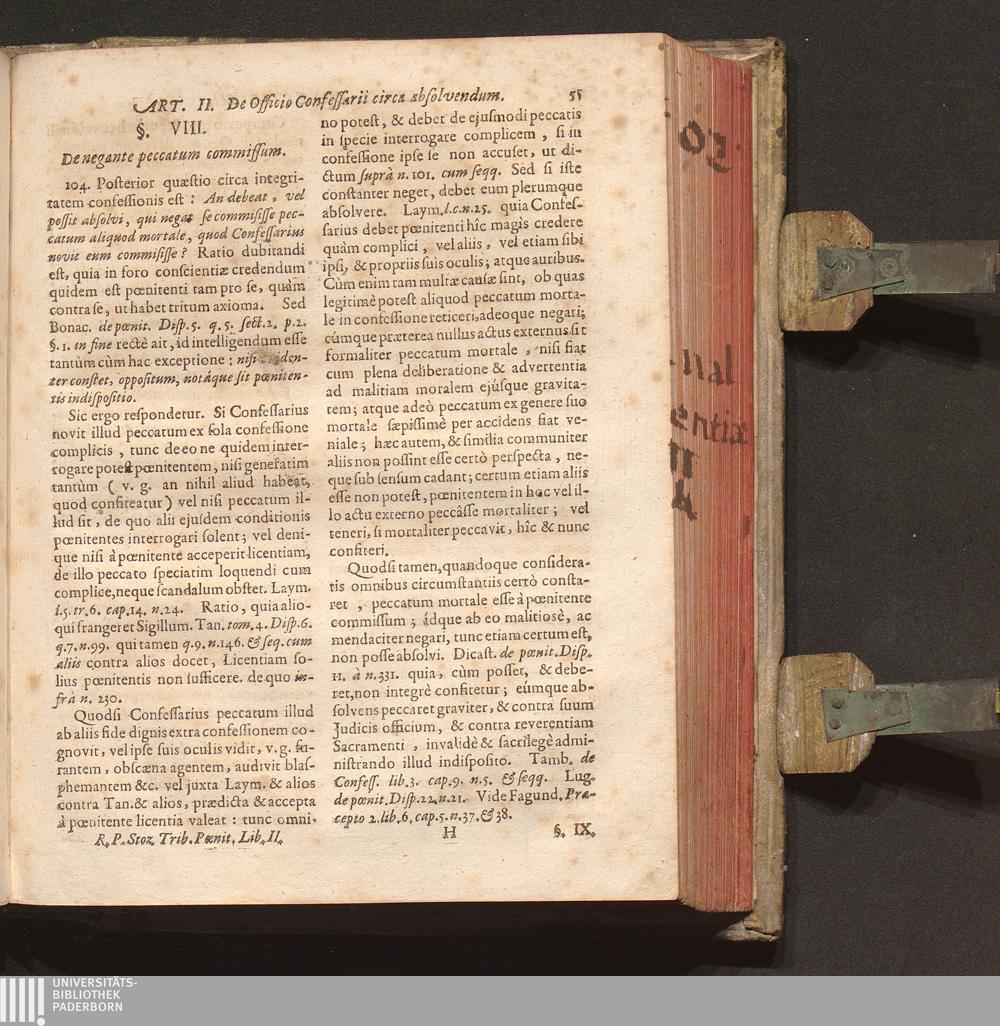 ART. II. De Officio Confeſſarii circa abſolvendum. 55
§. VIII.
De negante peccatum commiſſum.
104. Poſterior quæſtio circa integri-
tatem confeſſionis eſt : An debeat , vel
poſſit abſolvi, qui negat ſe commiſiſſe pec-
catum aliquod mortale, quod Confeſſarius
novit eum commiſiſſe ? Ratio dubitandi
eſt, quia in foro conſcientiæ credendum
quidem eſt pœnitenti tam pro ſe, quàm
contra ſe, ut habet tritum axioma. Sed
Bonac. de pœnit. Diſp. 5. q. 5. ſect. 2. p. 2.
§. 1. in fine rectè ait, id intelligendum eſſe
tantùm cùm hac exceptione : niſi eviden-
ter conſtet, oppoſitum, notáque ſit pœniten-
tis indiſpoſitio.
Sic ergo reſpondetur. Si Confeſſarius
novit illud peccatum ex ſola confeſſione
complicis , tunc de eo ne quidem inter-
rogare poteſt pœnitentem, niſi generatim
tantùm ( v. g. an nihil aliud habeat,
quod confiteatur ) vel niſi peccatum il-
lud ſit , de quo alii ejuſdem conditionis
pœnitentes interrogari ſolent ; vel deni-
que niſi à pœnitente acceperit licentiam,
de illo peccato ſpeciatim loquendi cum
complice, neque ſcandalum obſtet. Laym.
l. 5. tr. 6. cap. 14. n. 24. Ratio, quia alio-
qui frangeret Sigillum. Tan. tom. 4. Diſp. 6.
q. 7. n. 99. qui tamen q. 9. n. 146. & ſeq. cum
aliis contra alios docet, Licentiam ſo-
lius pœnitentis non ſufficere. de quo in-
frà n. 230.
Quodſi Confeſſarius peccatum illud
ab aliis fide dignis extra confeſſionem co-
gnovit, vel ipſe ſuis oculis vidit, v. g. fu-
rantem , obſcæna agentem, audivit blaſ-
phemantem &c. vel juxta Laym. & alios
contra Tan. & alios, prædicta & accepta
à pœnitente licentia valeat : tunc omni-
R. P. Stoz Trib. Pœnit. Lib. II.
no poteſt, & debet de ejuſmodi peccatis
in ſpecie interrogare complicem , ſi in
confeſſione ipſe ſe non accuſet, ut di-
ctum ſuprà n. 101. cum ſeqq. Sed ſi iſte
conſtanter neget, debet eum plerumque
abſolvere. Laym. l. c. n. 25. quia Confeſ-
ſarius debet pœnitenti hîc magìs credere
quàm complici , vel aliis , vel etiam ſibi
ipſi, & propriis ſuis oculis ; atque auribus.
Cùm enim tam multæ cauſæ ſint, ob quas
legitimè poteſt aliquod peccatum morta-
le in confeſſione reticeri, adeoque negari;
cúmque præterea nullus actus externus ſit
formaliter peccatum mortale , niſi fiat
cum plena deliberatione & advertentia
ad malitiam moralem ejúſque gravita-
tem ; atque adeò peccatum ex genere ſuo
mortale ſæpiſſimè per accidens fiat ve-
niale ; hæc autem, & ſimilia communiter
aliis non poſſint eſſe certò perſpecta , ne-
que ſub ſenſum cadant ; certum etiam aliis
eſſe non poteſt, pœnitentem in hoc vel il-
lo actu externo peccâſſe mortaliter ; vel
teneri, ſi mortaliter peccavit, hîc & nunc
confiteri.
Quodſi tamen, quandoque conſidera-
tis omnibus circumſtantiis certò conſta-
ret , peccatum mortale eſſe à pœnitente
commiſſum ; idque ab eo malitiosè, ac
mendaciter negari, tunc etiam certum eſt,
non poſſe abſolvi. Dicaſt. de pœnit. Diſp.
11. à n. 331. quia, cùm poſſet, & debe-
ret, non integrè confitetur ; eúmque ab-
ſolvens peccaret graviter, & contra ſuum
Judicis officium, & contra reverentiam
Sacramenti , invalidè & ſacrilegè admi-
niſtrando illud indiſpoſito. Tamb. de
Confeſſ. lib. 3. cap. 9. n. 5. & ſeqq. Lug.
de pœnit. Diſp. 22. n. 21. Vide Fagund. Præ-
cepto 2. lib. 6. cap. 5. n. 37. & 38.
H §. IX.
nal
entiæ
II
UNIVERSITÄTS-
BIBLIOTHEK
PADERBORN